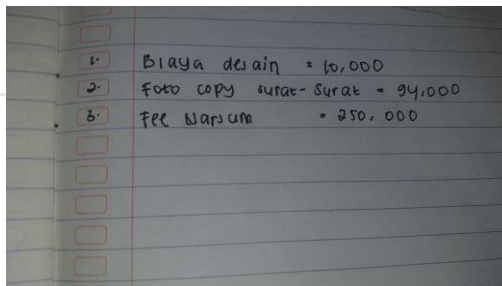 1. Biaya desain = 10,000
2. Foto copy surat-surat = 94,000
3. Fee Narsum = 250,000